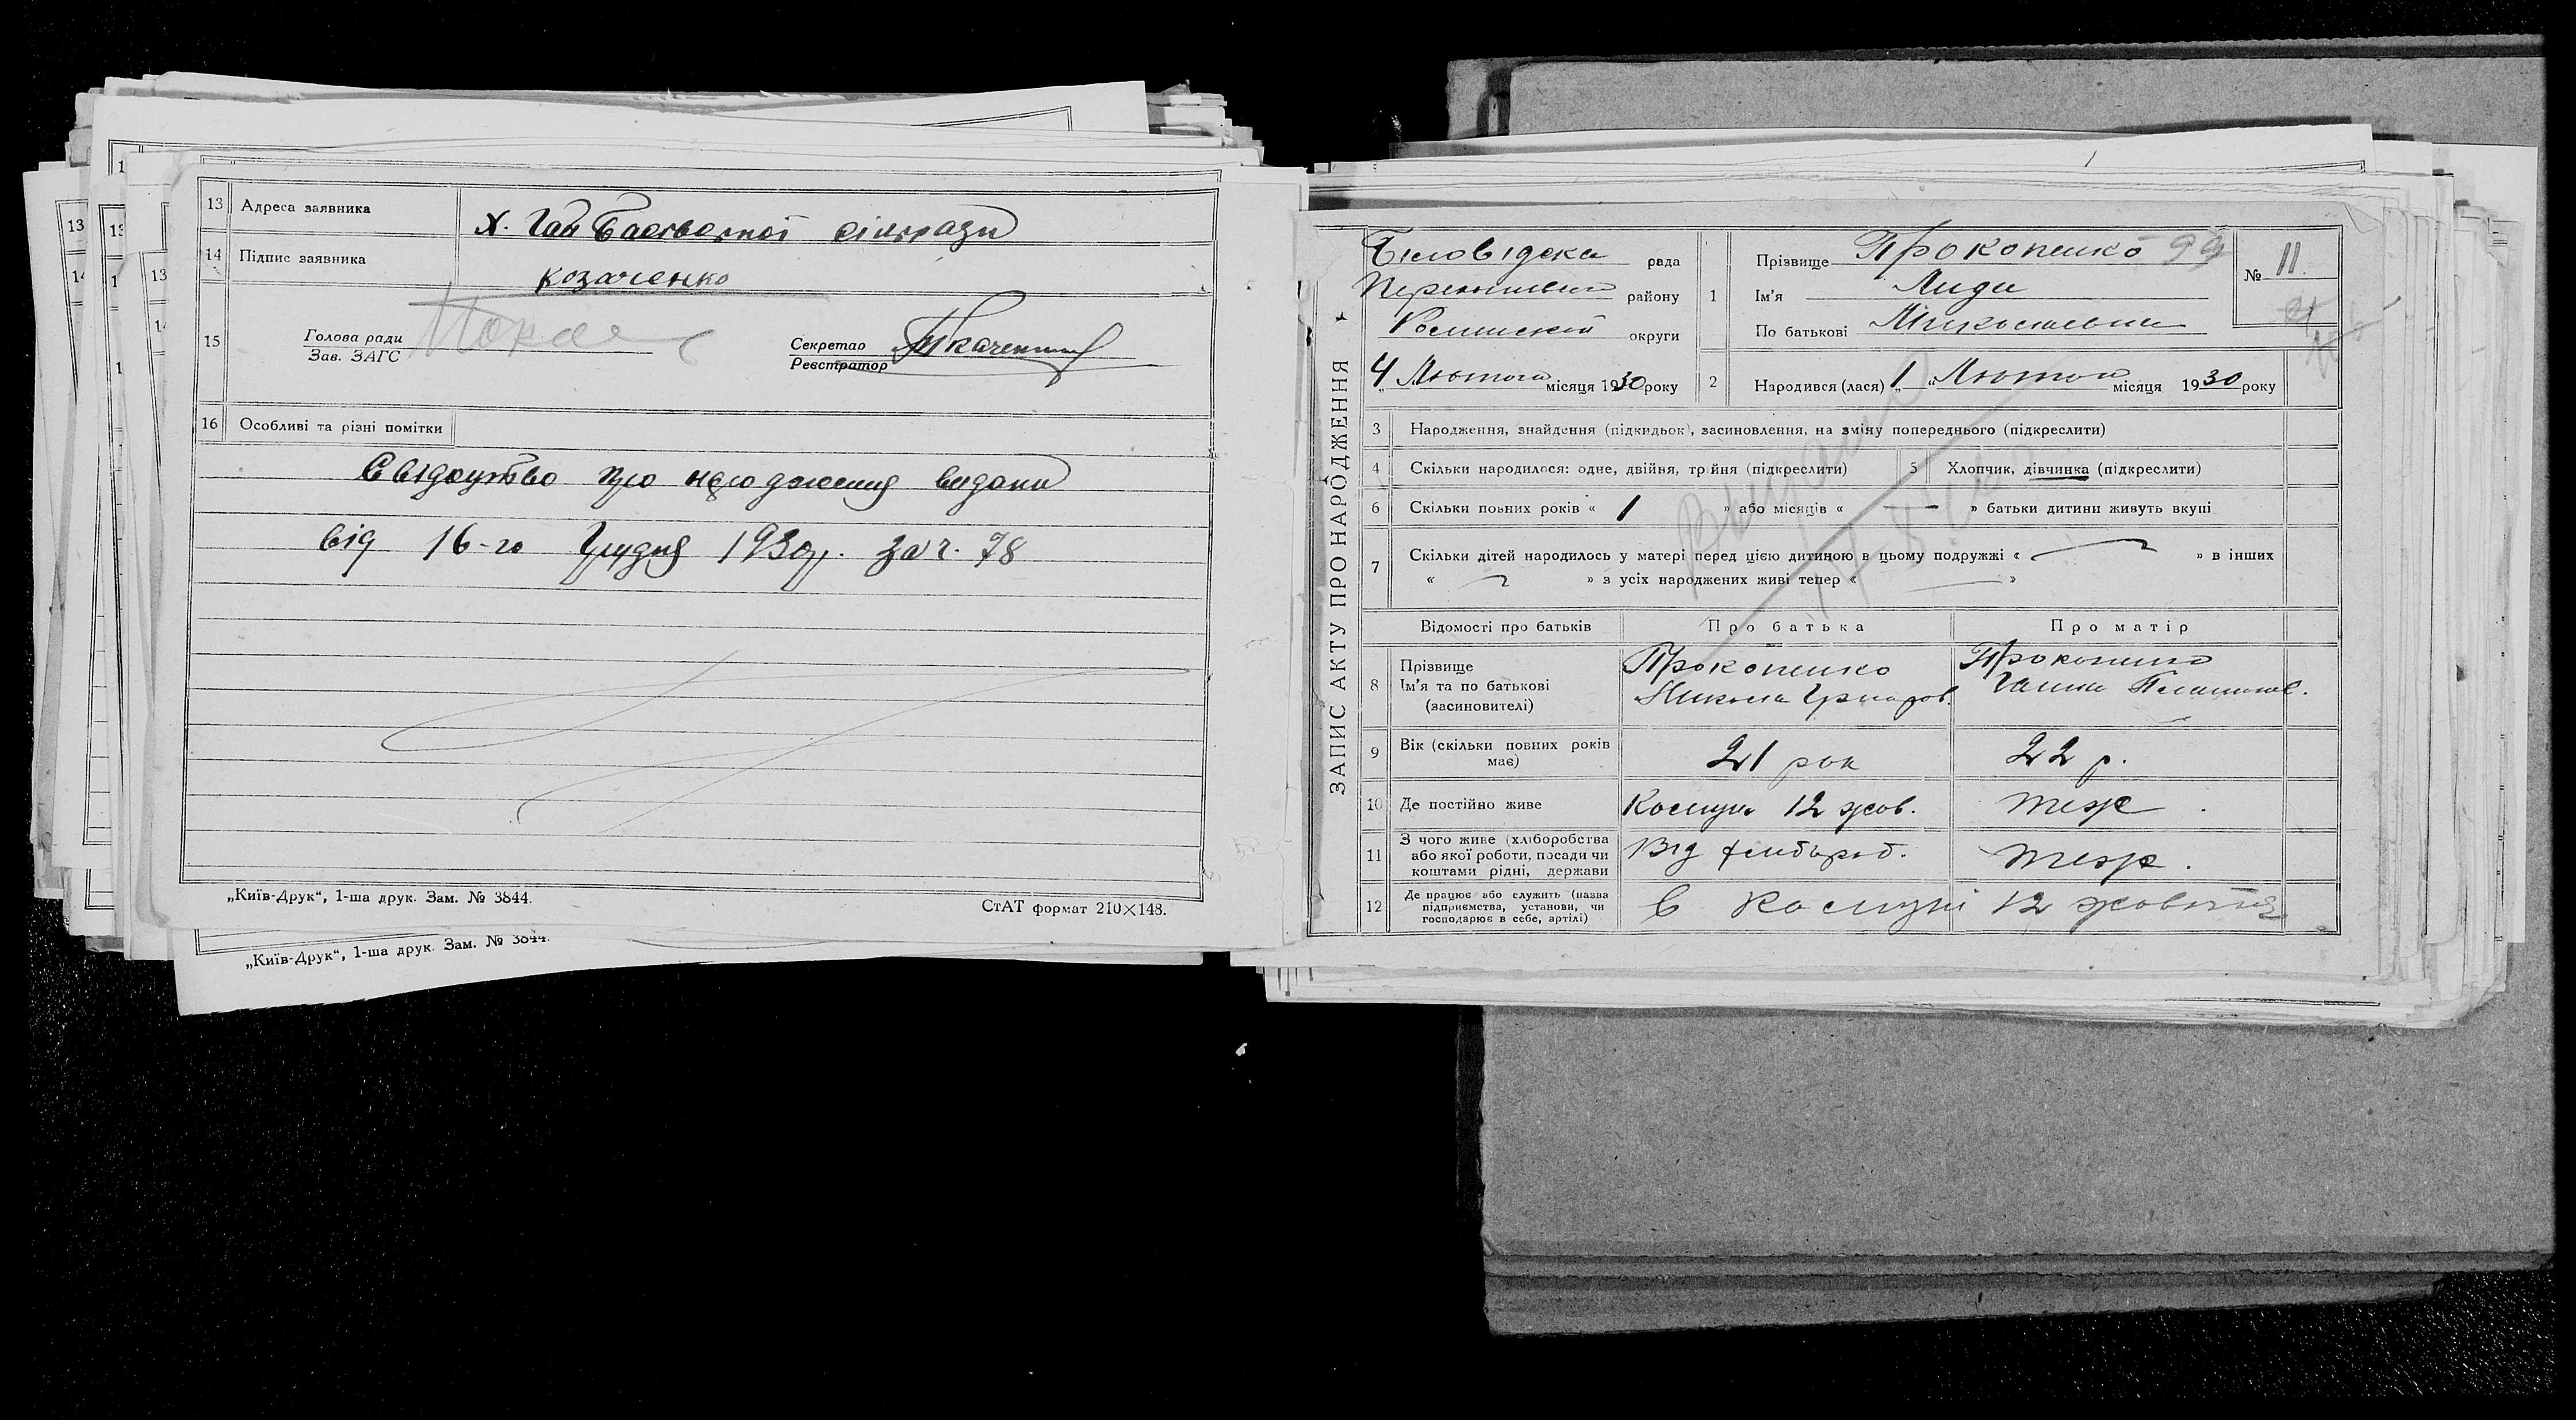 13 Адреса заявника
х. Гай сільради
14 Підпис заявника
козаченко
15 Голова ради
Зав. ЗАГС
Секретар Ткаченко
Реєстратор
16 Особливі та різні помітки
Свідоцтво про народження видани
від 16-го Грудня 1930 р. за ч. 78
„Київ-Друк“, 1-ша друк. Зам. № 3844.
СтАТ формат 210×148.
„Київ-Друк“, 1-ша друк. Зам. № 3844.
ЗАПИС АКТУ ПРО НАРОДЖЕННЯ
Біловідска рада
району
округи
4 Лютого місяця 1930 року
1 Прізвище Прокопенко 99
Ім'я Лида
По батькові Миколаевна
№ 11
2 Народився (лася) „1“ Лютого місяця 1930 року
3 Народження, знайдення (підкидьок), засиновлення, на зміну попереднього (підкреслити)
4 Скільки народилося: одне, двійня, трійня (підкреслити)
5 Хлопчик, дівчинка (підкреслити)
6 Скільки повних років « 1 » або місяців « — » батьки дитини живуть вкупі
7 Скільки дітей народилось у матері перед цією дитиною в цьому подружжі « » в інших
« » з усіх народжених живі тепер « — »
Відомості про батьків Про батька Про матір
8 Прізвище
Ім'я та по батькові
(засиновителі)
Прокопенко
Микола
Прокопенко
Галина
9 Вік (скільки повних років має)
21 рок
22 р.
10 Де постійно живе
Комуна 12 жов.
теж
11 З чого живе (хліборобства
або якої роботи, посади чи
коштами рідні, держави
Від хлібороб.
теж.
12 Де працює або служить (назва
підприємства, установи, чи
господарює в себе, артілі)
в Комуні 12 жовтня